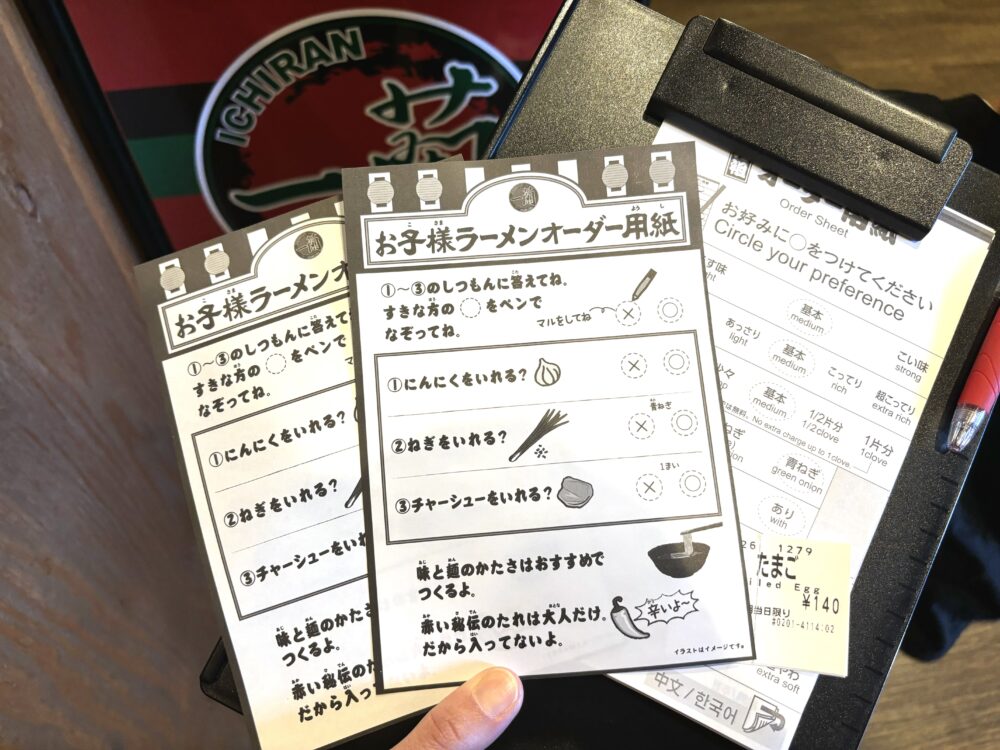 ICHIRAN
一蘭
お子様ラーメンオーダー用紙
①〜③のしつもんに答えてね。
すきな方の◯をペンで
なぞってね。
マルをしてね
①にんにくをいれる？
②ねぎをいれる？
青ねぎ
③チャーシューをいれる？
1まい
味と麺のかたさはおすすめで
つくるよ。
赤い秘伝のたれは大人だけ。
だから入ってないよ。
辛いよ〜
イラストはイメージです。
お子様ラーメンオ
①〜③のしつもんに答えて
すきな方の◯をペンで
なぞってね。
①にんにくをいれる？
②ねぎをいれる？
③チャーシューをいれ
味と麺のかたさ
つくるよ。
赤い秘伝のた
だから入っ
Order Sheet
お好みに◯をつけてください
Circle your preference
基本
medium
こい味
strong
あっさり
light
基本
medium
こってり
rich
超こってり
extra rich
基本
medium
1/2片分
1/2clove
1片分
1clove
No extra charge up to 1 clove.
青ねぎ
green onion
あり
with
26 1279
たまご
iled Egg
¥140
当日限り
#0201-4114:02
extra soft
中文 / 한국어